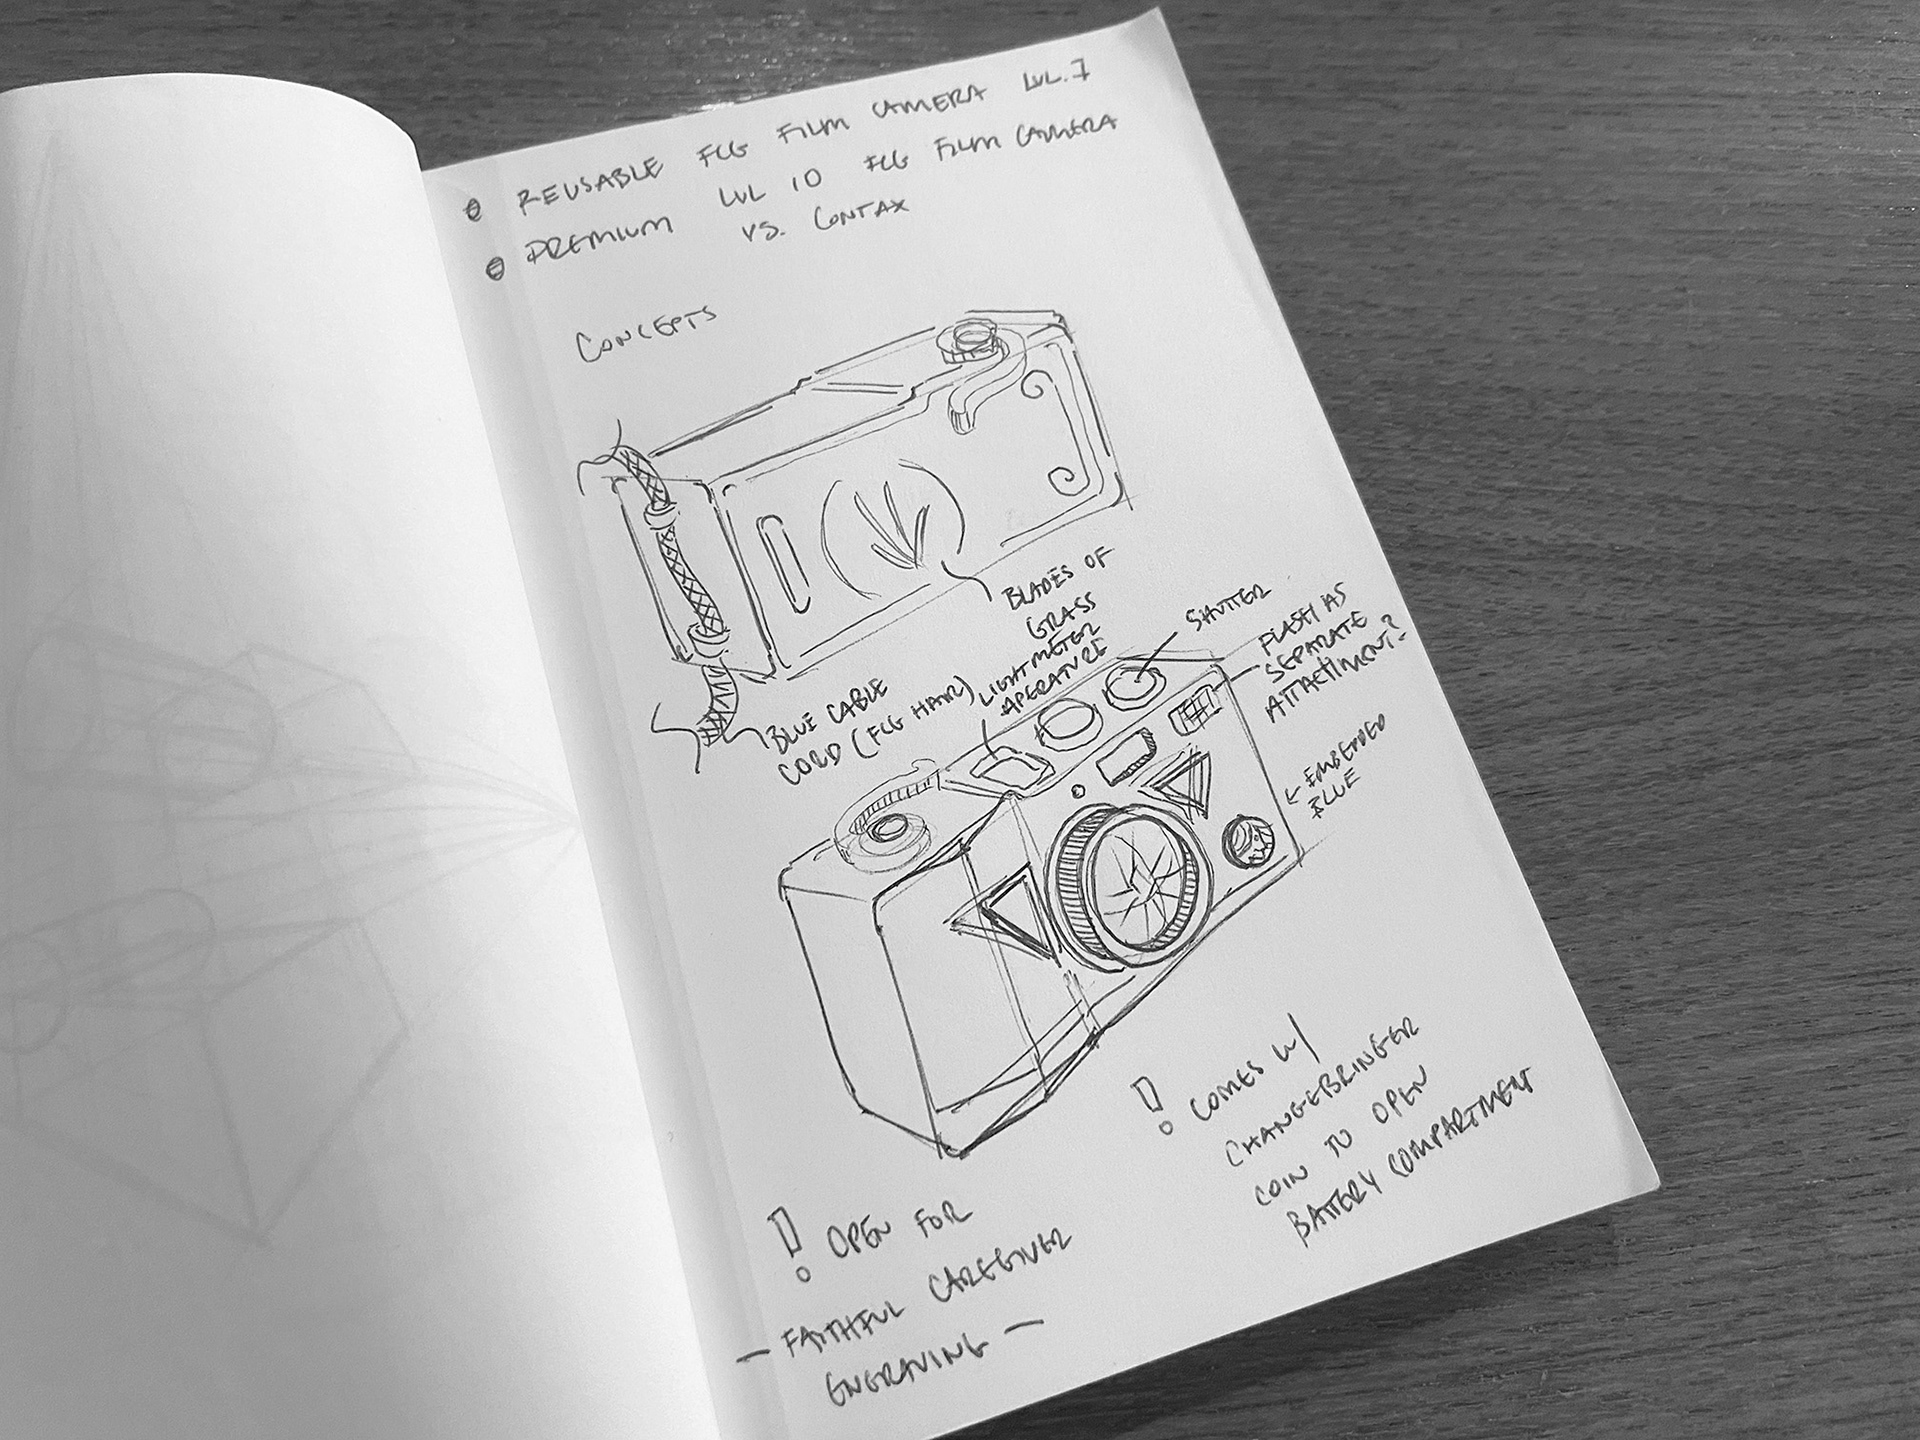 REUSABLE FCG FILM CAMERA LVL.7
PREMIUM LVL 10 FCG FILM CAMERA
VS. CONTAX
CONCEPTS
BLADES OF
GRASS
BLUE CABLE
CORD (FCG HAIR)
LIGHTMETER
APERATURE
SHUTTER
FLASH AS
SEPARATE
ATTACHMENT?
← EMBEDDED
BLUE
! COMES W/
CHANGEBRINGER
COIN TO OPEN
BATTERY COMPARTMENT
! OPEN FOR
— FAITHFUL CAREGIVER
ENGRAVING —